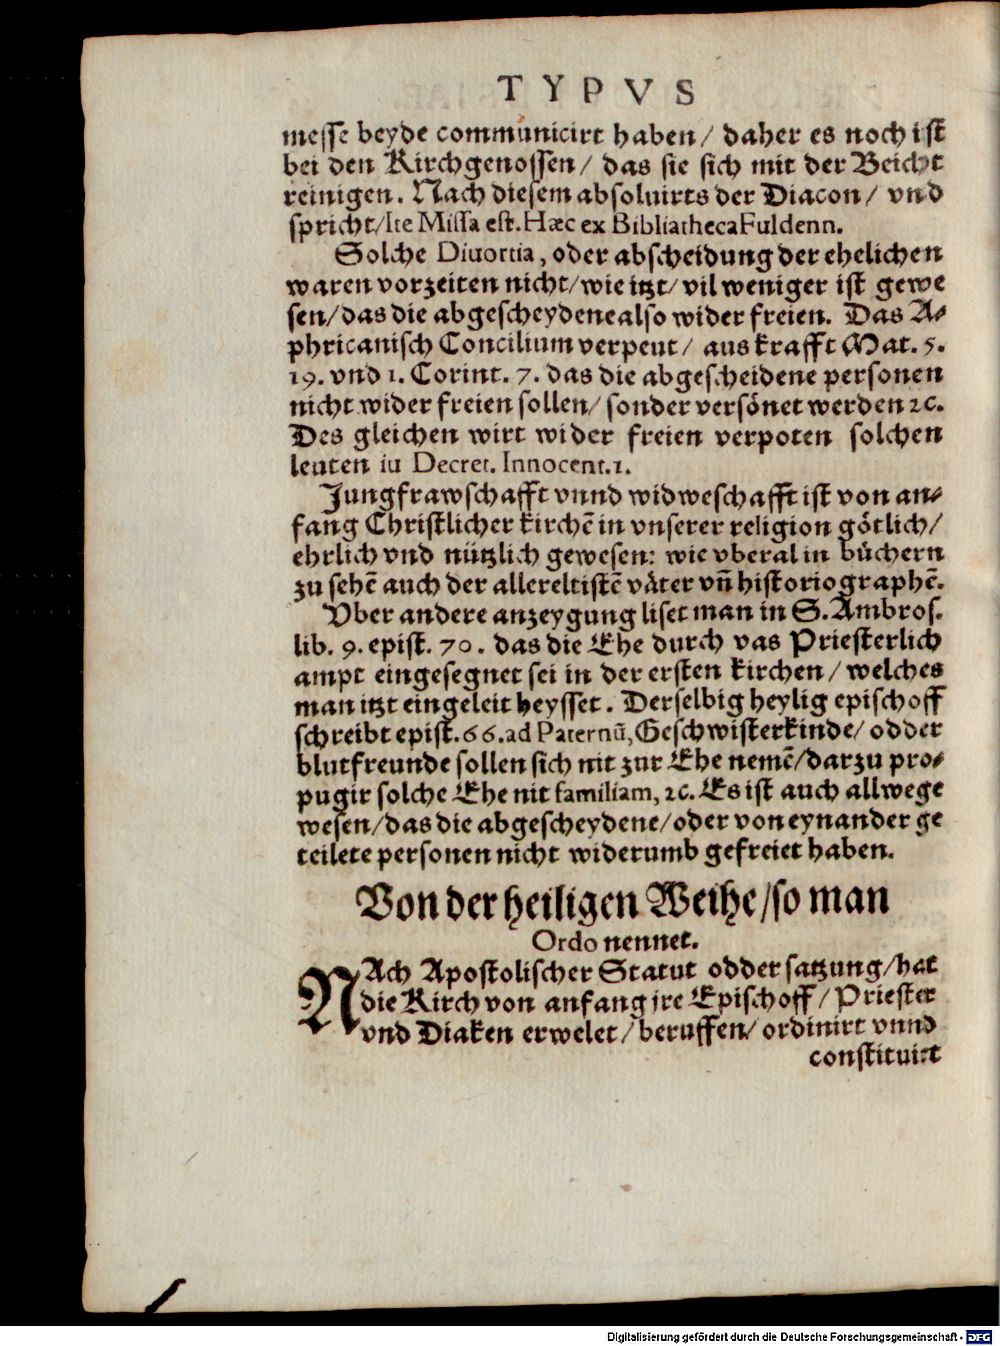 TYPVS
messe beyde communicirt haben/ daher es noch ist
bei den Kirchgenossen/ das sie sich mit der Beicht
reinigen. Nach diesem absoluirts der Diacon/ vnd
spricht/Ite Missa est. Hæc ex Bibliatheca Fuldenn.
Solche Diuortia, oder abscheidung der ehelichen
waren vorzeiten nicht/wie itzt/ vil weniger ist gewe
sen/das die abgescheydene also wider freien. Das A-
phricanisch Concilium verpeut/ aus krafft Mat. 5.
19. vnd 1. Corint. 7. das die abgescheidene personen
nicht wider freien sollen/ sonder versönet werden ꝛc.
Des gleichen wirt wider freien verpoten solchen
leuten iu Decret. Innocent. 1.
Jungfrawschafft vnnd widweschafft ist von an-
fang Christlicher kirchē in vnserer religion götlich/
ehrlich vnd nützlich gewesen: wie vberal in büchern
zu sehē auch der allereltistē väter vñ historiographē.
Vber andere anzeygung liset man in S. Ambros.
lib. 9. epist. 70. das die Ehe durch vas Priesterlich
ampt eingesegnet sei in der ersten kirchen/ welches
man itzt eingeleit heysset. Derselbig heylig epischoff
schreibt epist. 66. ad Paternū, Geschwisterkinde/ odder
blutfreunde sollen sich nit zur Ehe nemē/darzu pro-
pugir solche Ehe nit familiam, ꝛc. Es ist auch allwege
wesen/das die abgescheydene/oder von eynander ge
teilete personen nicht widerumb gefreiet haben.
Von der heiligen Weihe/so man
Ordo nennet.
NAch Apostolischer Statut odder satzung/hat
die Kirch von anfang jre Epischoff/ Priester
vnd Diaken erwelet/ beruffen/ ordinirt vnnd
constituirt
Digitalisierung gefördert durch die Deutsche Forschungsgemeinschaft - DFG